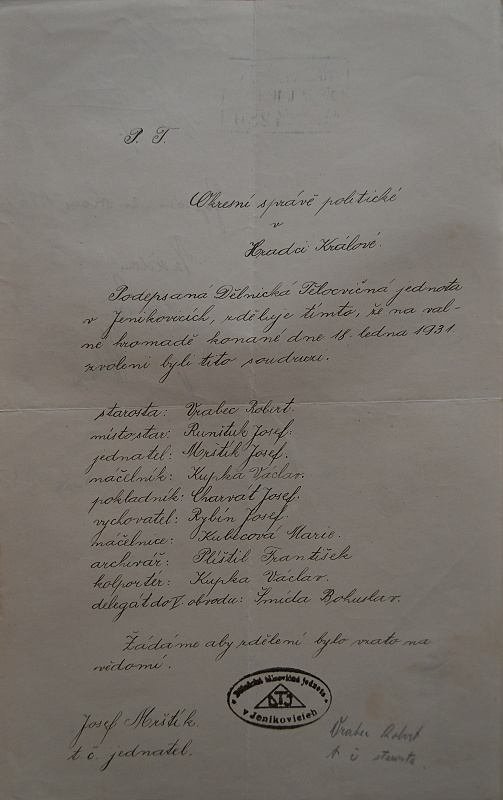 P. T.
Okresní správě politické
v
Hradci Králové.
Podepsaná Dělnická Tělocvičná jednota
v Jeníkovicích, sděluje tímto, že na val-
né hromadě konané dne 18. ledna 1931.
zvoleni byli tito soudruzi.
starosta: Vrabec Robert.
místostar: Runštuk Josef.
jednatel: Mrštík Josef.
náčelník: Kupka Václav.
pokladník: Charvát Josef.
vychovatel: Rybín Josef.
náčelnice: Kubecová Marie.
archivář: Plíštil František
kolportér: Kupka Václav.
delegát do V. obvodu: Šmída Bohuslav.
Žádáme aby sdělení bylo vzato na
vědomí.
Dělnická tělocvičná jednota
DTJ
v Jeníkovicích
Josef Mrštík.
t. č. jednatel.
Vrabec Robert
t. č. starosta